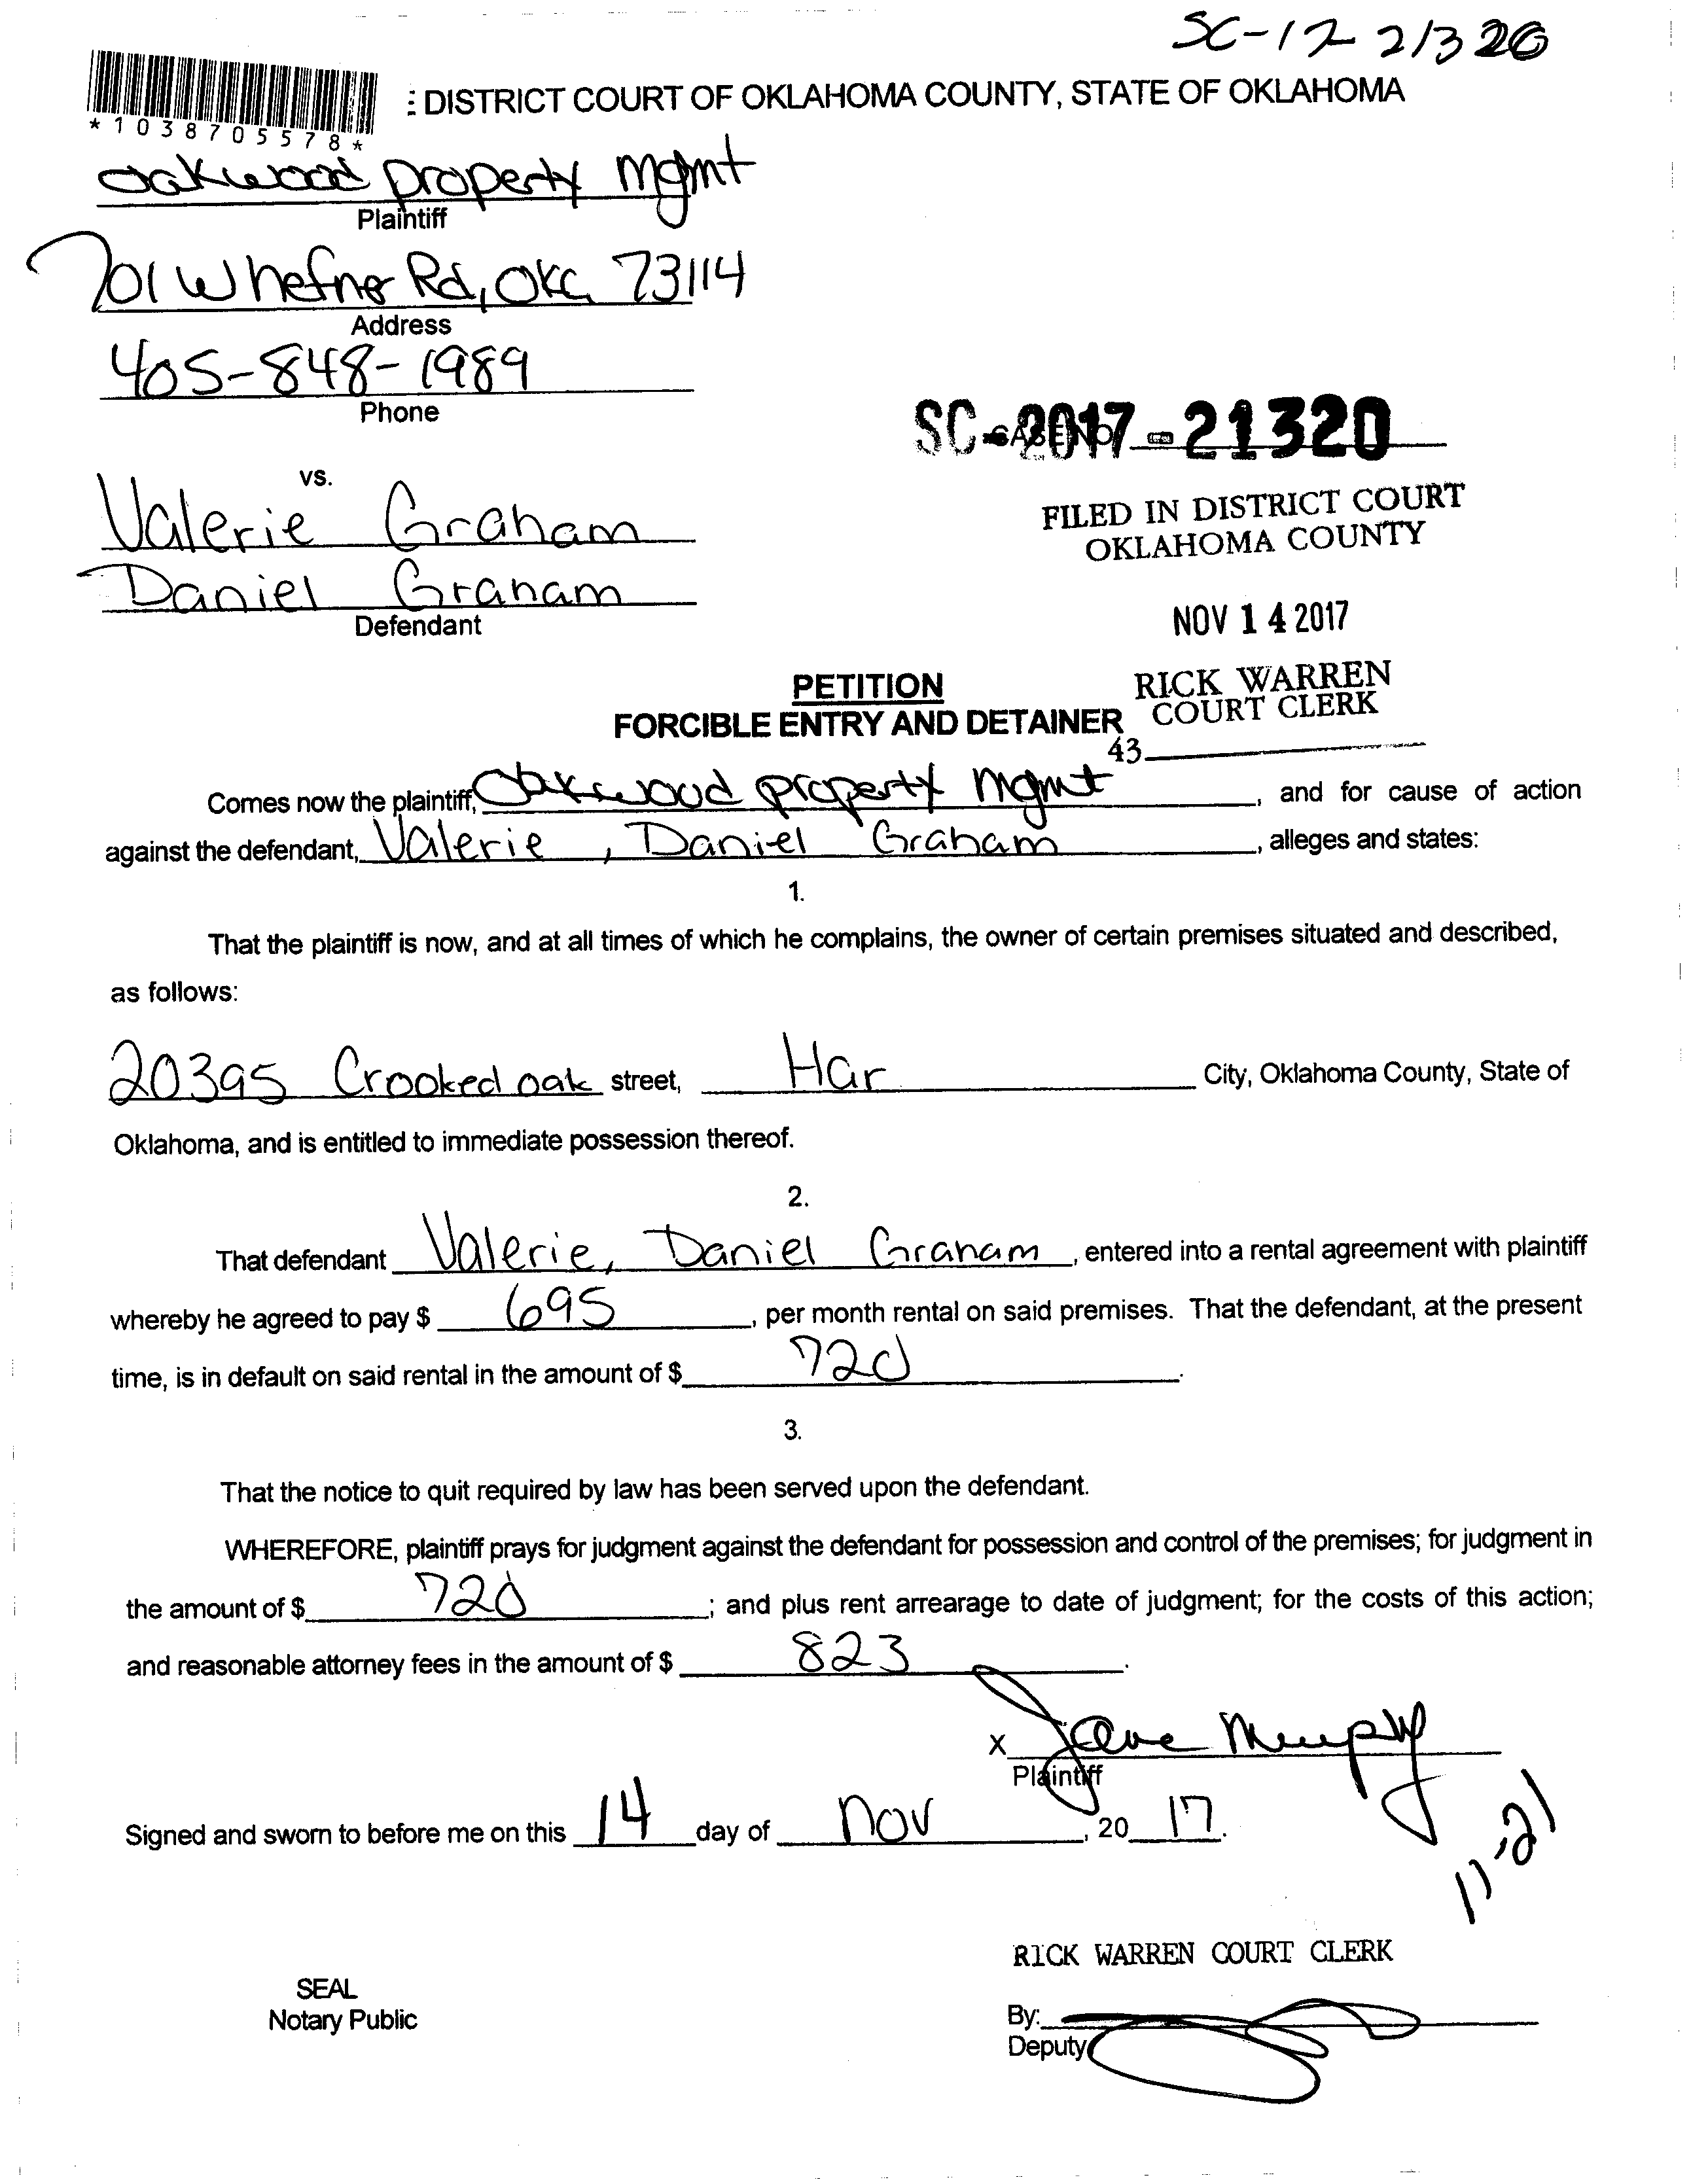 SC-17 21320
: DISTRICT COURT OF OKLAHOMA COUNTY, STATE OF OKLAHOMA
*1038705578*
oakwood property mgmt
Plaintiff
701 W hefner Rd, OKC 73114
Address
405-848-1989
Phone
SC-2017-21320
CASE NO
vs.
Valerie Graham
FILED IN DISTRICT COURT
OKLAHOMA COUNTY
Daniel Graham
Defendant
NOV 14 2017
PETITION
RICK WARREN
FORCIBLE ENTRY AND DETAINER
COURT CLERK
43
Comes now the plaintiff, Oakwood property mgmt, and for cause of action
against the defendant, Valerie, Daniel Graham, alleges and states:
1.
That the plaintiff is now, and at all times of which he complains, the owner of certain premises situated and described,
as follows:
20395 Crooked oak street, Har City, Oklahoma County, State of
Oklahoma, and is entitled to immediate possession thereof.
2.
That defendant Valerie, Daniel Graham, entered into a rental agreement with plaintiff
whereby he agreed to pay $ 695, per month rental on said premises. That the defendant, at the present
time, is in default on said rental in the amount of $ 720.
3.
That the notice to quit required by law has been served upon the defendant.
WHEREFORE, plaintiff prays for judgment against the defendant for possession and control of the premises; for judgment in
the amount of $ 720; and plus rent arrearage to date of judgment; for the costs of this action;
and reasonable attorney fees in the amount of $ 823.
X Jane Murphy
Plaintiff
Signed and sworn to before me on this 14 day of nov, 20 17.
11-21
RICK WARREN COURT CLERK
SEAL
Notary Public
By:
Deputy